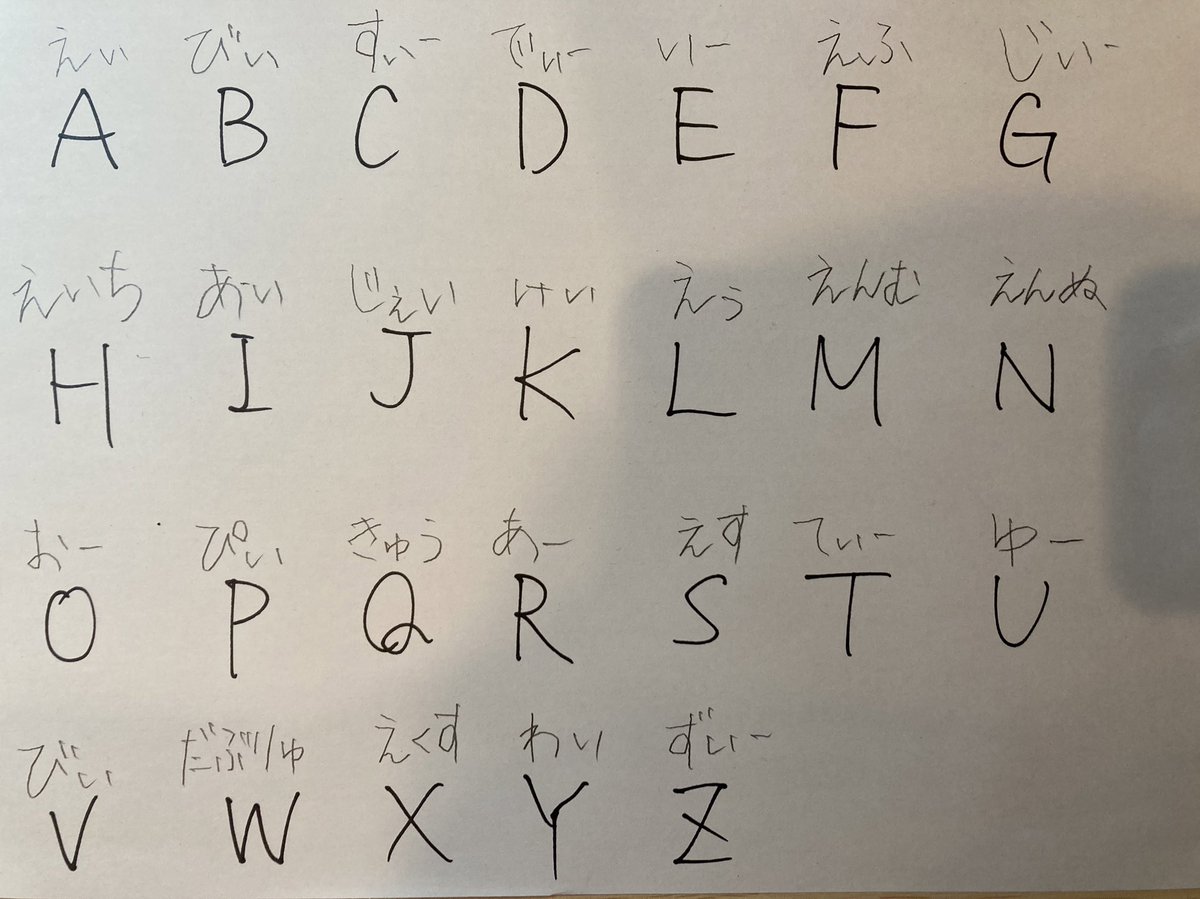 えい びい すぃー でぃー いー えふ じぃー
A B C D E F G
えいち あい じぇい けい えぅ えんむ えんぬ
H I J K L M N
おー ぴぃ きゅう あー えす てぃー ゆー
O P Q R S T U
びぃ だぶりゅ えくす わい ずぃー
V W X Y Z